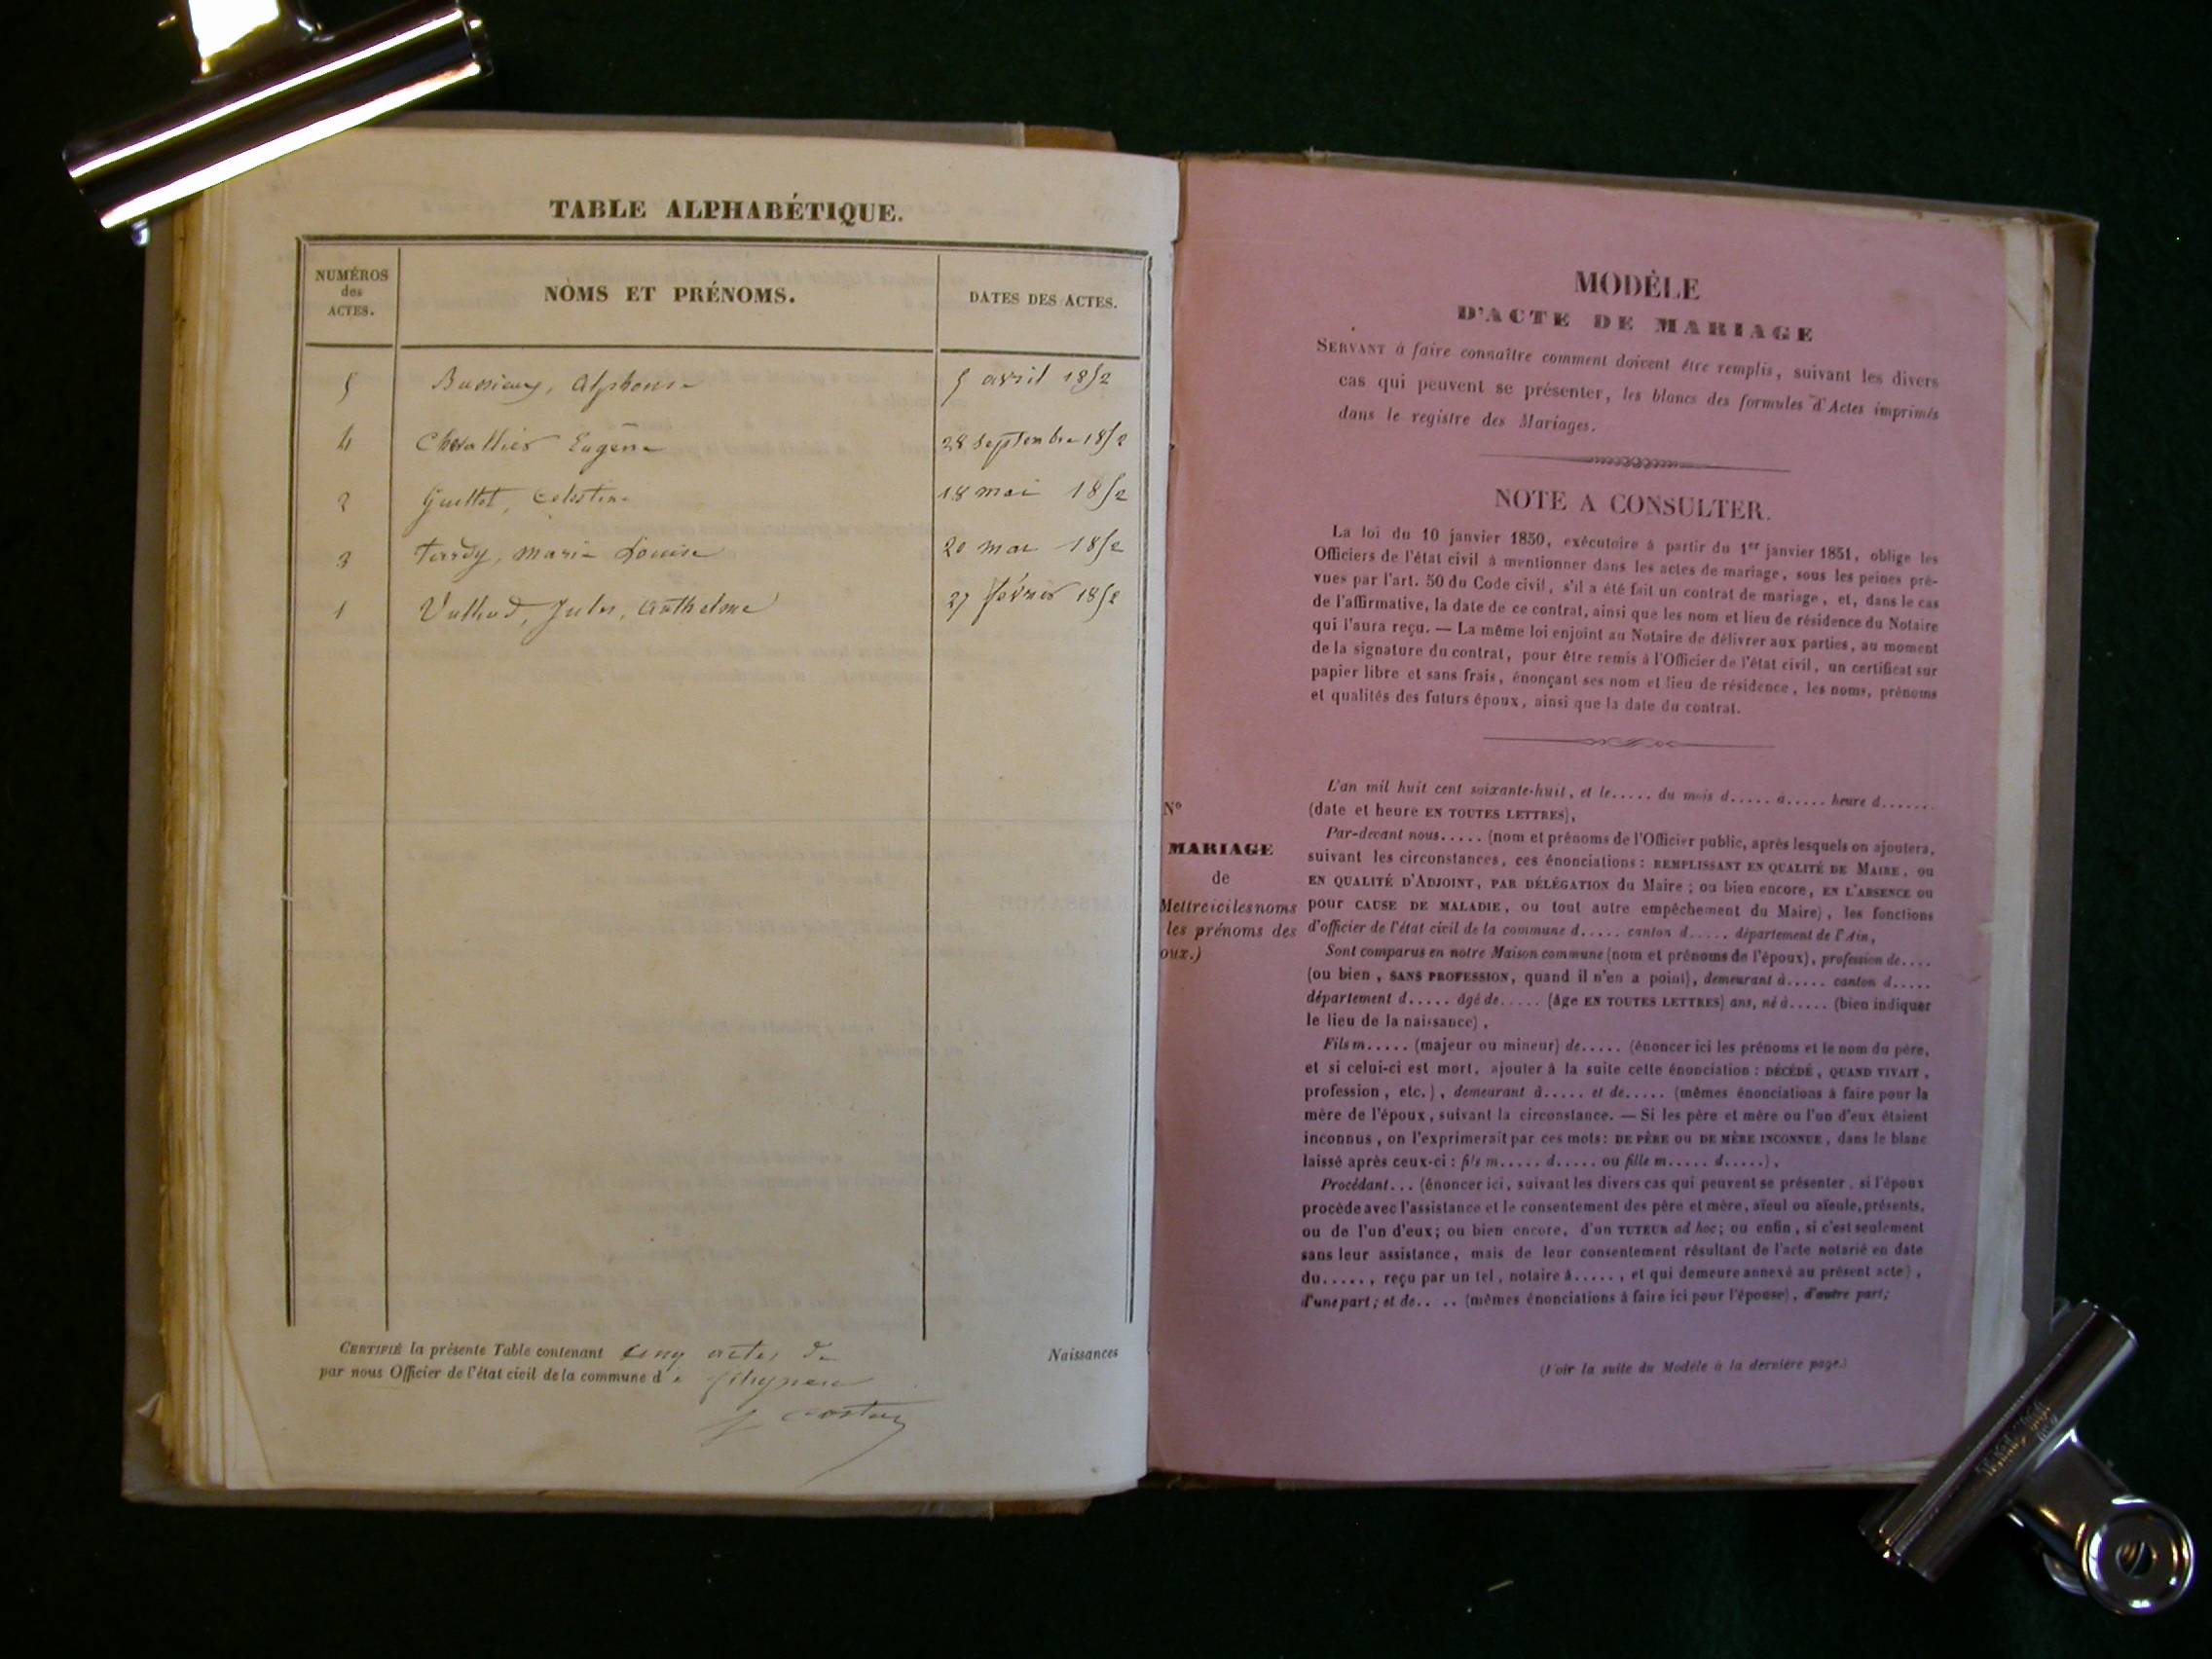 TABLE ALPHABÉTIQUE.
NUMÉROS
des
ACTES.
NOMS ET PRÉNOMS.
DATES DES ACTES.
5 Alphonse 5 avril 1852
4 Chevallier Eugène 28 Septembre 1852
2 Guillot, Celestine 18 mai 1852
3 Tardy, Marie Louise 20 mai 1852
1 Jules, Anthelme 27 février 1852
CERTIFIÉ la présente Table contenant cinq actes de Naissances
par nous Officier de l'état civil de la commune d
MODÈLE
D'ACTE DE MARIAGE
SERVANT à faire connaître comment doivent être remplis, suivant les divers
cas qui peuvent se présenter, les blancs des formules d'Actes imprimés
dans le registre des Mariages.
NOTE A CONSULTER.
La loi du 10 janvier 1850, exécutoire à partir du 1er janvier 1851, oblige les
Officiers de l'état civil à mentionner dans les actes de mariage, sous les peines pré-
vues par l'art. 50 du Code civil, s'il a été fait un contrat de mariage, et, dans le cas
de l'affirmative, la date de ce contrat, ainsi que les nom et lieu de résidence du Notaire
qui l'aura reçu. — La même loi enjoint au Notaire de délivrer aux parties, au moment
de la signature du contrat, pour être remis à l'Officier de l'état civil, un certificat sur
papier libre et sans frais, énonçant ses nom et lieu de résidence, les noms, prénoms
et qualités des futurs époux, ainsi que la date du contrat.
N°
MARIAGE
de
Mettre ici les noms
les prénoms des
oux.)
L'an mil huit cent soixante-huit, et le..... du mois d..... à..... heure d.......
(date et heure EN TOUTES LETTRES),
Par-devant nous..... (nom et prénoms de l'Officier public, après lesquels on ajoutera,
suivant les circonstances, ces énonciations : REMPLISSANT EN QUALITÉ DE MAIRE, ou
EN QUALITÉ D'ADJOINT, PAR DÉLÉGATION du Maire ; ou bien encore, EN L'ABSENCE ou
pour CAUSE DE MALADIE, ou tout autre empêchement du Maire), les fonctions
d'officier de l'état civil de la commune d..... canton d..... département de l'Ain,
Sont comparus en notre Maison commune (nom et prénoms de l'époux), profession de....
(ou bien, SANS PROFESSION, quand il n'en a point), demeurant à..... canton d.....
département d..... âgé de..... (âge EN TOUTES LETTRES) ans, né à..... (bien indiquer
le lieu de la naissance),
Fils m..... (majeur ou mineur) de..... (énoncer ici les prénoms et le nom du père,
et si celui-ci est mort, ajouter à la suite cette énonciation : DÉCÉDÉ, QUAND VIVAIT,
profession, etc.), demeurant à..... et de..... (mêmes énonciations à faire pour la
mère de l'époux, suivant la circonstance. — Si les père et mère ou l'un d'eux étaient
inconnus, on l'exprimerait par ces mots : DE PÈRE ou DE MÈRE INCONNUE, dans le blanc
laissé après ceux-ci : fils m..... d..... ou fille m..... d.....),
Procédant... (énoncer ici, suivant les divers cas qui peuvent se présenter, si l'époux
procède avec l'assistance et le consentement des père et mère, aïeul ou aïeule, présents,
ou de l'un d'eux ; ou bien encore, d'un TUTEUR ad hoc ; ou enfin, si c'est seulement
sans leur assistance, mais de leur consentement résultant de l'acte notarié en date
du....., reçu par un tel, notaire à....., et qui demeure annexé au présent acte),
d'une part ; et de.. .. (mêmes énonciations à faire ici pour l'épouse), d'autre part ;
(Voir la suite du Modèle à la dernière page.)